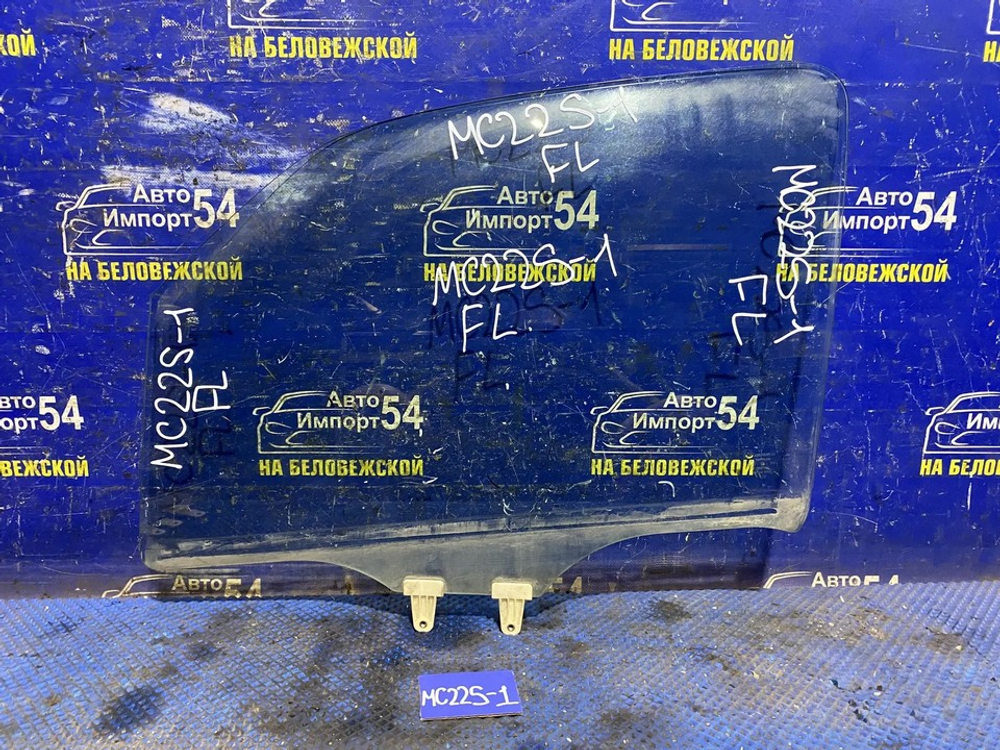 КОЙ
НА БЕЛОВЕЖСКОЙ
НА БЕЛОВЕЖСКОЙ
MC22S-1
FL
Авто
Импорт 54
НА БЕЛОВЕЖСКОЙ
Авто
Импорт 54
НА БЕЛОВЕЖСКОЙ
Авто
Импорт 54
НА БЕЛОВЕЖСКОЙ
MC22S-1
FL
MC22S-1
FL
MC22S-1
FL
вто
порт 54
НА БЕЛОВЕЖСКОЙ
Авто
Импорт 54
НА БЕЛОВЕЖСКОЙ
Авто
Импорт 54
НА БЕЛОВЕЖСКОЙ
Им
НА БЕЛОВЕЖСКОЙ
Авто
54
Авто
MC22S-1